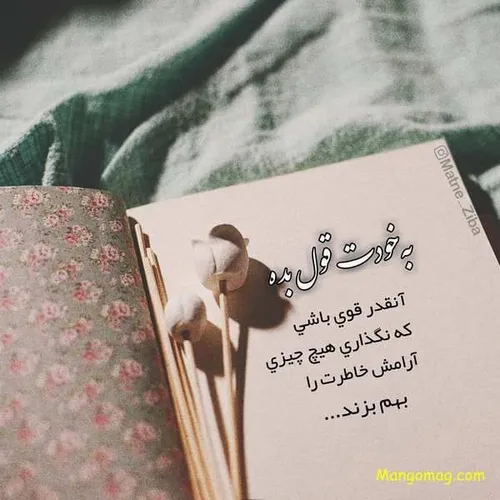 به خودت قول بده
آنقدر قوي باشي
که نگذاري هيچ چيزي
آرامش خاطرت را
بهم بزند...
@Matne_Ziba
Mangomag.com